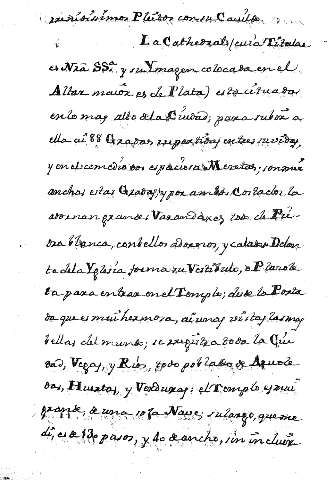 ruidisimos Pleitos con su Cavildo.
La Cathedral (cuia Titular
es Nrâ SSª. y su Ymagen colocada en el
Altar maiór es de Plata) está situada
en lo mas alto de la Ciudad; para subir a
ella ai 88 Gradas repartidas en tres suvidas,
y en el comedio dos espaciosas Mesetas; son mui
anchas estas Gradas, y por ambos Costados la
adornan grandes Varandaxes, todo de Pie-
dra blanca, con bellos adornos, y calados. Delan-
te de la Yglesia forma su Vestibulo, o Planole-
ta para entrar en el Templo; desde la Porta
da que es mui hermosa, ai unas vistas las mas
bellas del mundo; se registra toda la Ciu-
dad, Vegas, y Rios, todo poblado de Arvole-
das, Huertas, y Verduras: el Templo es mui
grande, de una sola Nave; su largo, que me-
di, es de 130 pasos, y 40 de ancho, sin incluir